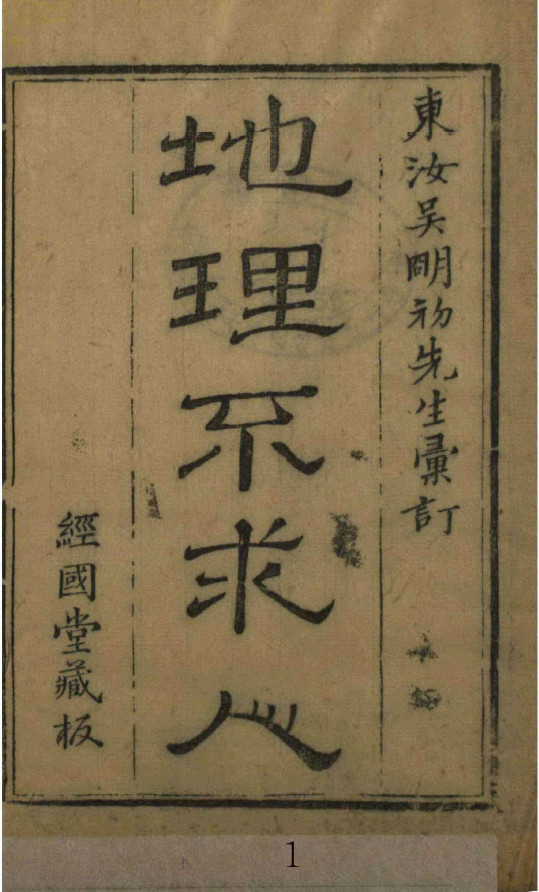 東汝吴明初先生彙訂
地理不求人
經國堂藏板
1